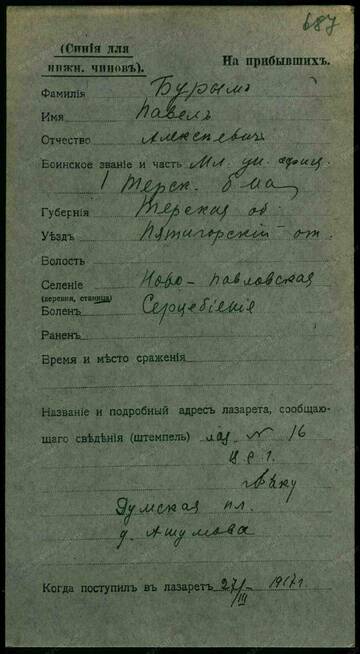 687
(Синія для
нижн. чиновъ).
На прибывшихъ.
Фамилія Бурымъ
Имя Павелъ
Отчество Алексѣевичъ
Воинское званіе и часть Мл. ун. офиц.
1 Терск. б-ма
Губернія Терская об.
Уѣздъ Пятигорскій от.
Волость
Селеніе Ново-Павловская
(деревня, станица)
Боленъ Сердцебіеніе
Раненъ
Время и мѣсто сраженія
Названіе и подробный адресъ лазарета, сообщаю-
щаго свѣдѣнія (штемпель) лаз. № 16
г. Баку
Думская пл.
д. Ашумова
Когда поступилъ въ лазаретъ 27/III 1917 г.